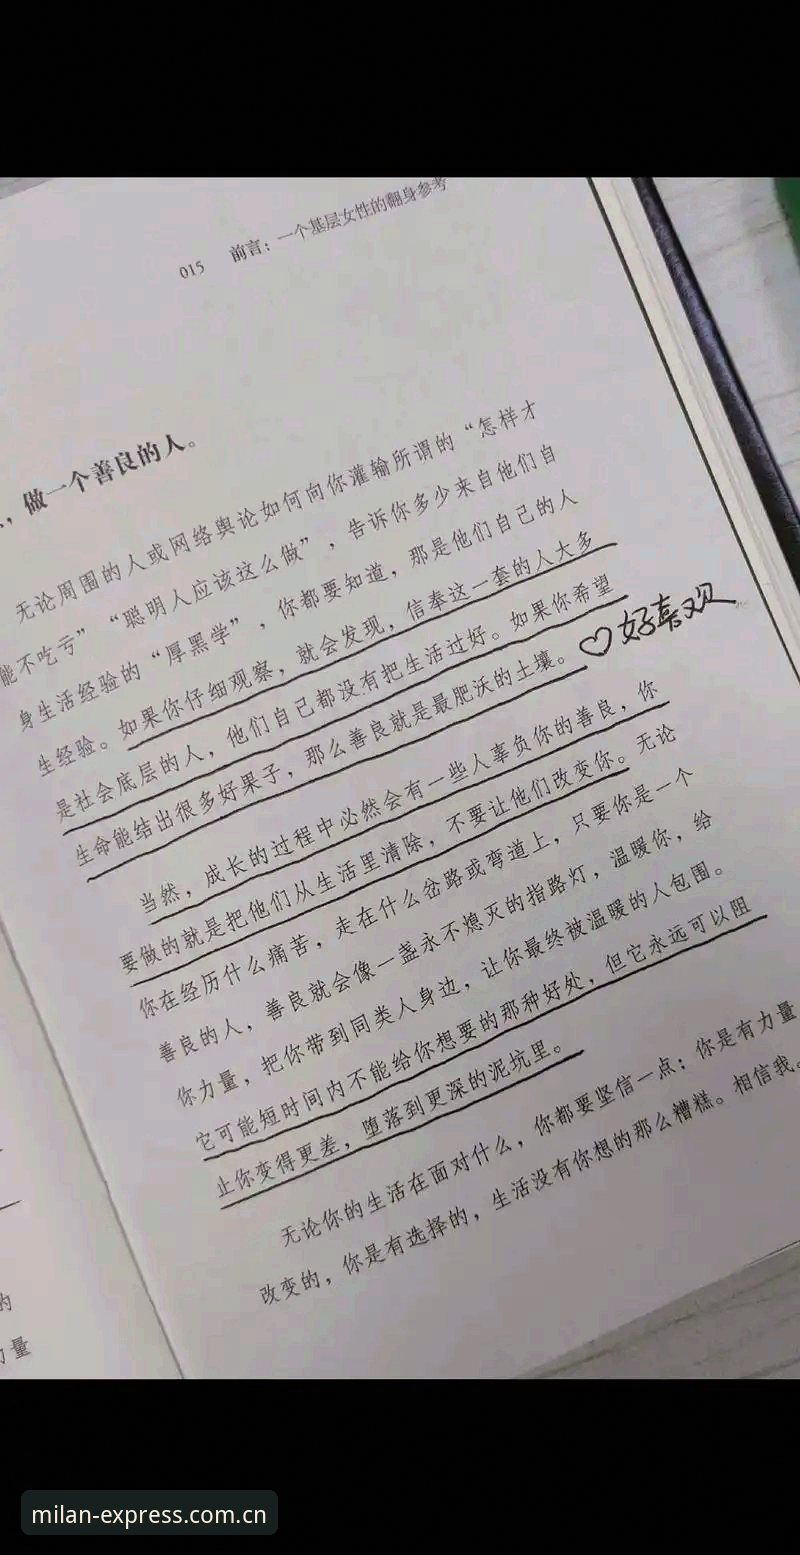 015 前言：一个基层女性的翻身参考
，做一个善良的人。
无论周围的人或网络舆论如何向你灌输所谓的“怎样才
能不吃亏”“聪明人应该这么做”，告诉你多少来自他们自
身生活经验的“厚黑学”，你都要知道，那是他们自己的人
生经验。如果你仔细观察，就会发现，信奉这一套的人大多
是社会底层的人，他们自己都没有把生活过好。如果你希望
生命能结出很多好果子，那么善良就是最肥沃的土壤。
♡好喜欢
当然，成长的过程中必然会有一些人辜负你的善良，你
要做的就是把他们从生活里清除，不要让他们改变你。无论
你在经历什么痛苦，走在什么岔路或弯道上，只要你是一个
善良的人，善良就会像一盏永不熄灭的指路灯，温暖你，给
你力量，把你带到同类人身边，让你最终被温暖的人包围。
它可能短时间内不能给你想要的那种好处，但它永远可以阻
止你变得更差，堕落到更深的泥坑里。
无论你的生活在面对什么，你都要坚信一点：你是有力量
改变的，你是有选择的，生活没有你想的那么糟糕。相信我。
的
力量
milan-express.com.cn